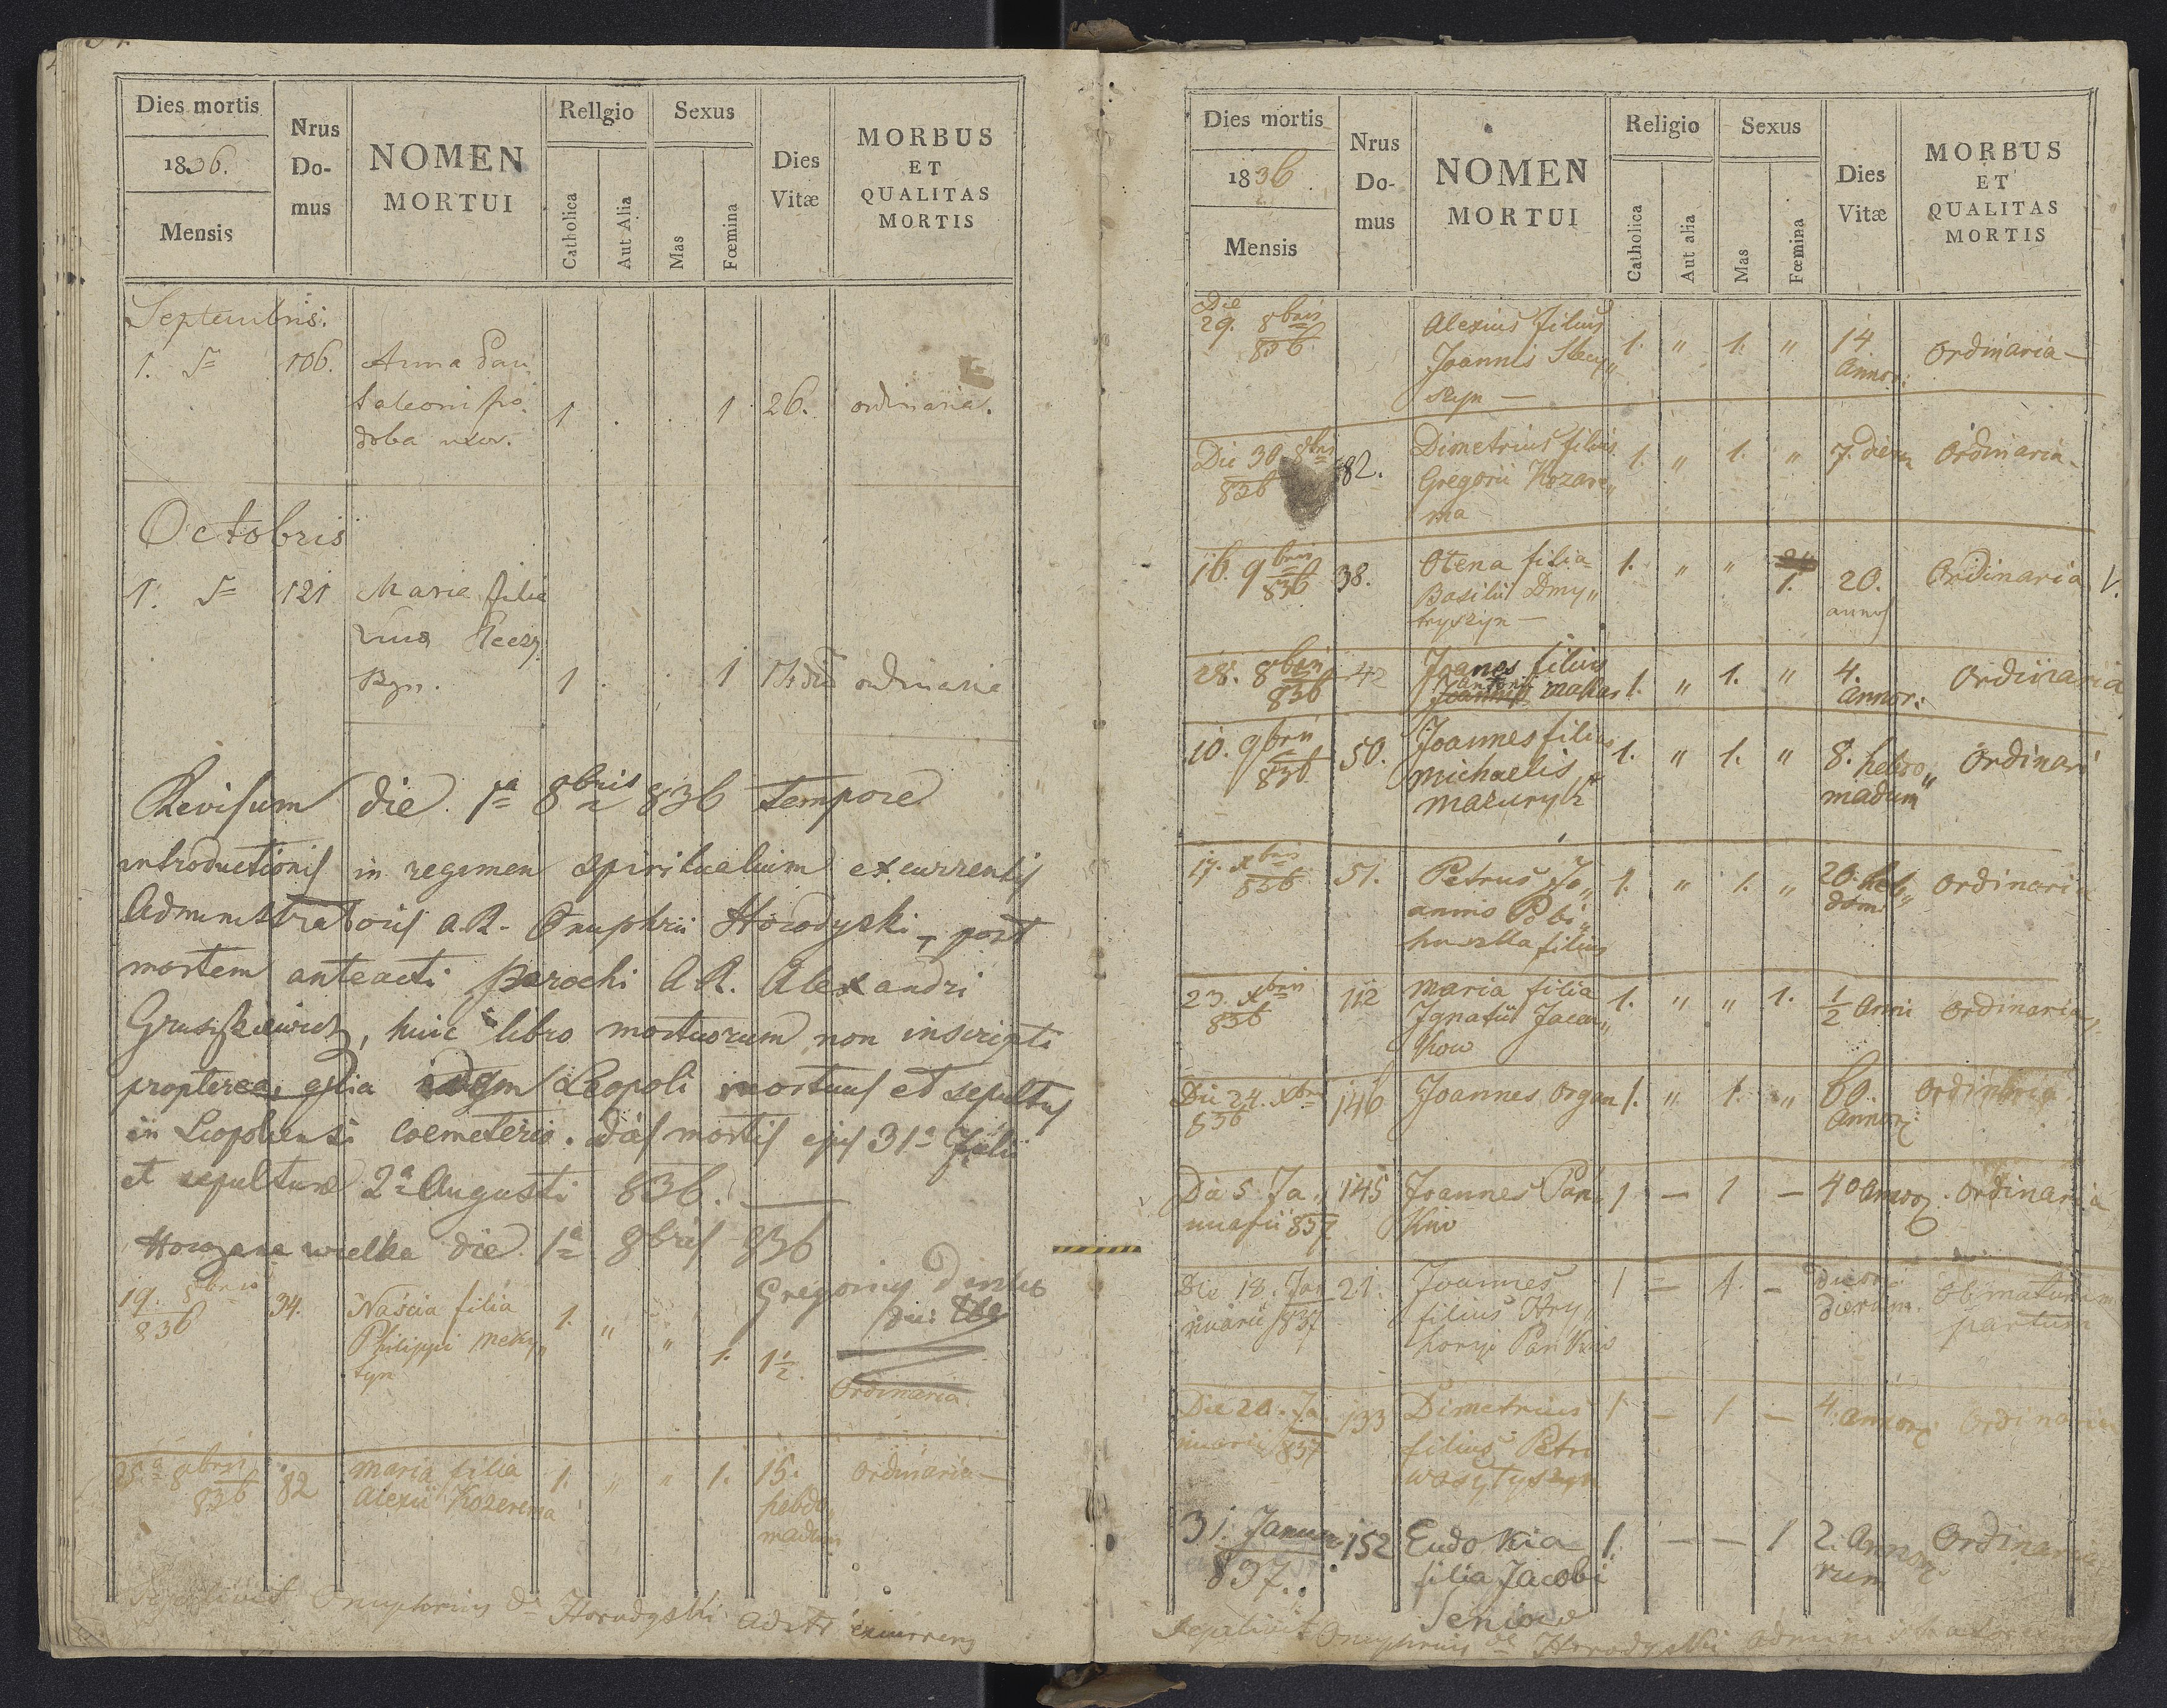 Dies mortis
1836.
Mensis
Nrus
Do-
mus
NOMEN
MORTUI
Rellgio
Catholica
Aut Alia
Sexus
Mas
Fœmina
Dies
Vitæ
MORBUS
ET
QUALITAS
MORTIS
Septembris.
1. 106. Anna Pan
taleoni
doba uxor. 1 . . 1 26. ordinaria.
Octobris
1. 121 Maria filia
1 . . 1 ordinaria
Revisum die 1ª 8bris 836 tempore
introductionis in regimen spiritualium excurrentis
Administratoris A.R. Onuphrii Horodyski, post
mortem anteacti parochi A.R. Alexandri
huic libro mortuorum non inscripti
propterea, Leopoli mortuus et sepultus
in Leopoliensi coemeterio. mortis ejus 31ª Julii
et sepulturæ 2ª Augusti 836.
Horozana wielka die 1ª 8bris 836
Gregorius
19. 8bris
836 34. Naścia filia
Philippi Meky„
tyn 1. „ „ 1. 1½. Ordinaria.
25ª 8bris
836 82 Maria filia
Alexii Kozerema 1. „ „ 1. 15.
hebdo„
madum Ordinaria—
Sepelivit Onuphrius de Horodyski Adstr excurrens
Dies mortis
1836
Mensis
Nrus
Do-
mus
NOMEN
MORTUI
Religio
Catholica
Aut alia
Sexus
Mas
Fœmina
Dies
Vitæ
MORBUS
ET
QUALITAS
MORTIS
Die
29. 8bris
836 Alexius filius
Joannis Stecy„
szyn — 1. „ 1. „ 14.
Annor: Ordinaria—
Die 30 8bris
836 82. Dimetrius filius
Gregorii Kozere„
ma 1. „ 1. „ 7. dierum Ordinaria—
16. 9bris
836 38. Olena filia
Basilii Dmy„
tryszyn — 1. „ „ 1. 20.
annos Ordinaria
28. 8bris
836 42 Joanes filius
Mathas 1. „ 1. „ 4.
Annor: Ordinaria
10. 9bris
836 50. Joannes filius
Michaelis
Mazuryk 1. „ 1. „ 8. hebdo„
madum Ordinari
17. Xbris
836 51. Petrus Jo„
annis
filius 1. „ 1. „ 20. heb„
dom Ordinaria
23. Xbris
836 112 Maria filia
Ignatii Jacen„
kow 1. „ „ 1. ½ Anni Ordinaria
Die 24. Xbris
836 146 Joannes Organ 1. „ 1. „ 60.
Annor: Ordinaria
Die 5. Ja„
nuarii 837 145 Joannes Pan„
kiw 1 — 1 — 40 annor. Ordinaria
Die 18. Ja„
nuarii 837 21. Joannes
filius Hry„
horyi Pankiw 1 — 1. — dierum. Ob maturam
partum
Die 20. Ja„
nuarii 837 133 Dimetrius
filius Petri
Wasylyszyn 1 — 1 — 4. annor: Ordinaria
31. Januar
837. 152 Eudokia
filia Jacobi
Seniow 1. — — 1 2. Anno„
rum Ordinaria
Sepelivit Onuphrius de Horodyski